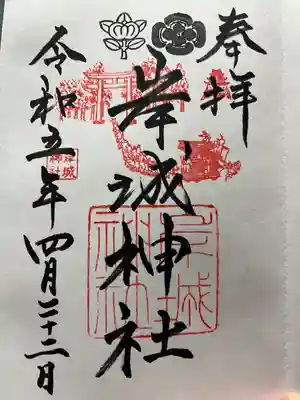 奉拝
岸城神社
令和五年四月二十二日
岸城神社